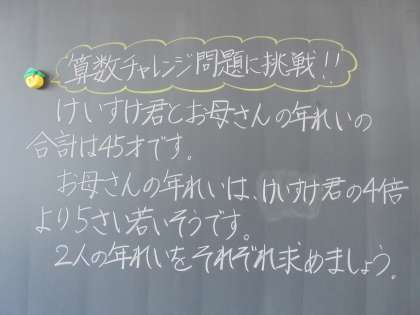 算数チャレンジ問題に挑戦!!
けいすけ君とお母さんの年れいの
合計は45才です。
お母さんの年れいは、けいすけ君の4倍
より5さい若いそうです。
2人の年れいをそれぞれ求めましょう。